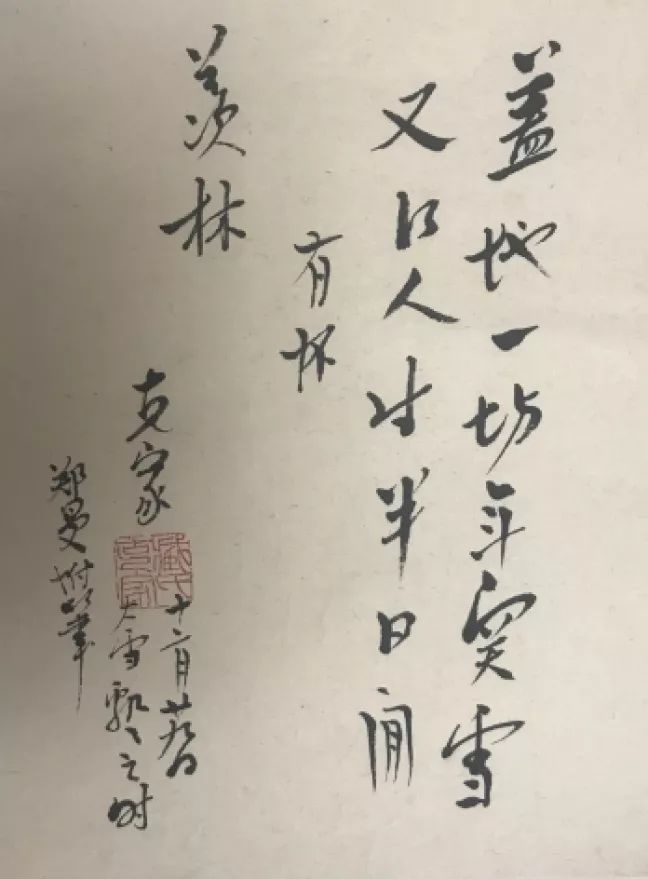 盖地一场雪
又得人生半日閒
有怀
羡林
克家
十二月
大雪飘飘之时
郑曼附笔